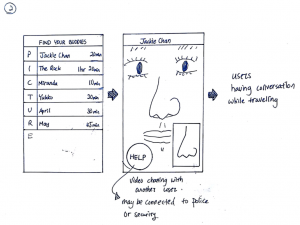 2
FIND YOUR BUDDIES
P Jackie Chan 20min
I The Rock 1hr 20min
C Miranda 10min
T Yukko 30min
U April 30min
R May 45min
E
Jackie Chan
HELP
users
having conversation
while traveling
video chating with
another user.
may be connected to police
or security.